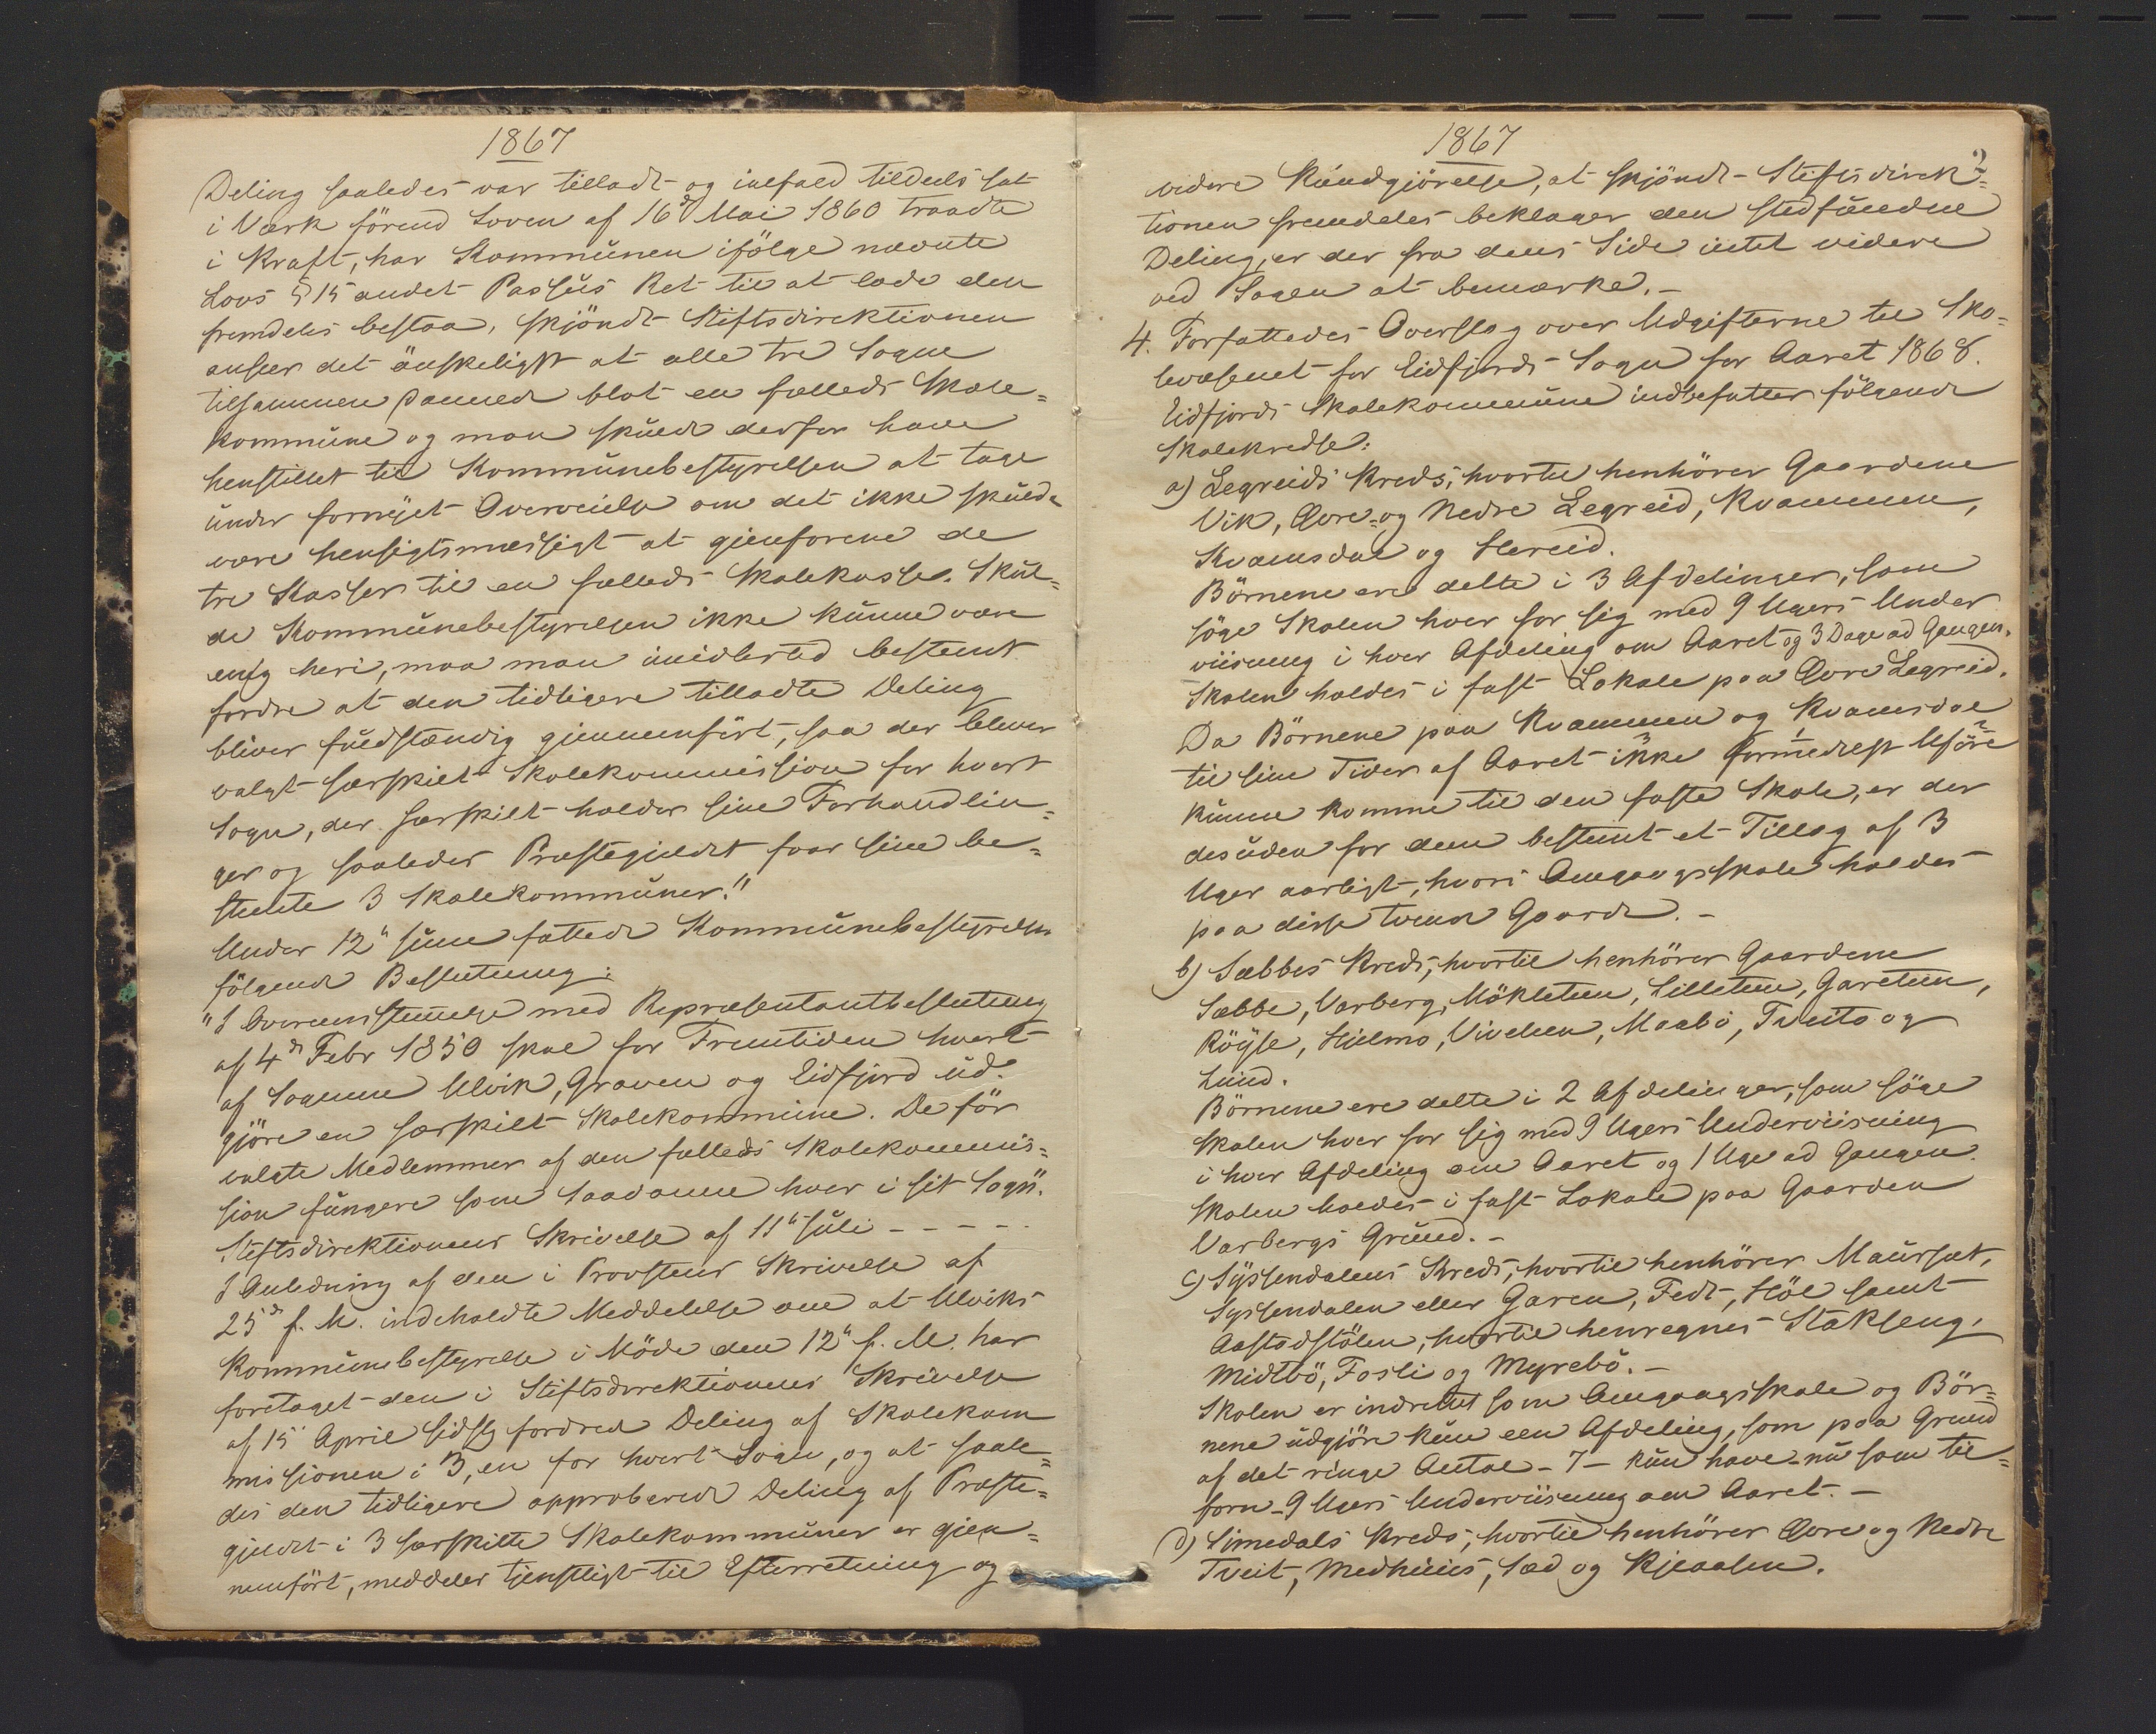 1867
Deling saaledes var tilladt og ialfald tildeels sat
i Værk förend Loven af 16de Mai 1860 traadte
i Kraft, har Kommunen ifölge nævnte
Lovs § 15 andet Passus Ret til at lade den
fremdeles bestaa, skjöndt Stiftsdirektionen
anseer det önskeligst at alle tre Sogne
tilsammen danned blot en fælleds Skole=
kommune og man skulde derfor have
henstillet til Kommunebestyrelsen at tage
under fornyet Overveielse om det ikke skulde
være hensigtsmæssigt at gjenforene de
tre Kasser til en fælleds Skolekasse. Skul=
de Kommunebestyrelsen ikke kunne være
enig heri, maa man imidlertid bestemt
fordre at den tidligere tilladte Deling
bliver fuldstændig gjennemfört, saa der bliver
valgt særskilt Skolekommission for hvert
Sogn, der særskilt holder sine Forhandlin=
ger og saaledes Præstegjeldet faar sine be=
stemte 3 Skolekommuner."
Under 12te Juni fattede Kommunebestyrelsen
fölgende Beslutning:
"I Overeensstemmelse med Repræsentantbeslutning
af 4de Febr 1850 skal for Fremtiden hvert
af Sognene Ulvik, Graven og Eidfjord ud=
gjöre en særskilt Skolekommune. De för
valgte Medlemmer af den fælleds Skolekommis=
sion fungere som saadanne hver i sit Sogn".
Stiftsdirektionens Skrivelse af 11te Juli - - - - -
I Anledning af den i Provstens Skrivelse af
25de f. M. indeholdte Meddelelse om at Ulviks
Kommunebestyrelse i Möde den 12te f. M. har
foretaget den i Stiftsdirektionens Skrivelse
af 15 April sidstl fordrede Deling af Skolekom
missionen i 3, en for hvert Sogn, og at saale=
des den tidligere approberede Deling af Præste=
gjeldet i 3 særskilte Skolekommuner er gjen=
nemfört, meddeles tjenstligst til Efterretning og
1867
2
videre Kundgjörelse, at skjöndt Stiftsdirek=
tionen fremdeles beklager den stedfundne
Deling, er der fra dens Side intet videre
ved Sagen at bemærke. -
4. Forfattedes Overslag over Udgifterne til Sko=
levæsenet for Eidfjords Sogn for Aaret 1868.
Eidfjords Skolekommune indbefatter fölgende
Skolekredse:
a) Legreids Kreds, hvortil henhörer Gaardene
Vik, Övre= og Nedre Legreid, Kvammen,
Kvamsdal og Hereid.
Börnene ere delte i 3 Afdelinger, som
söge Skolen hver for sig med 9 Ugers Under
viisning i hver Afdeling om Aaret og 3 Dage ad Gangen.
Skolen holdes i fast Lokale paa Övre Legreid.
Da Börnene paa Kvammen og Kvamsdal
til sine Tider af Aaret ikke formedelst Uföre
kunne komme til den faste Skole, er der
desuden for dem bestemt et Tillæg af 3
Uger aarligt, hvori Omgangsskole holdes
paa disse tvende Gaarde. -
b) Sæbbes Kreds, hvortil henhörer Gaardene
Sæbbe, Varberg, Mökletun, Lilletun, Garetun,
Röyse, Hjelmo, Vivelien, Maabö, Tveito og
Lund.
Börnene ere delte i 2 Afdelinger, som söge
Skolen hver for sig med 9 Ugers Underviisning
i hver Afdeling om Aaret og 1 Uge ad Gangen.
Skolen holdes i fast Lokale paa Gaarden
Varbergs Grund. -
c) Syssendalens Kreds, hvortil henhörer Maurset,
Syssendalen eller Garen, Fedt, Höl samt
Aastedstölen, hvortil henregnes Stakseng,
Midtbö, Fosli og Myrebö. -
Skolen er indrettet som Omgangsskole og Bör=
nene udgjöre kun een Afdeling, som paa Grund
af det ringe Antal - 7 - kun have nu som til=
forn 9 Ugers Underviisning om Aaret. -
d) Simedals Kreds, hvortil henhörer Övre og Nedre
Tveit, Medhuus, Sæd og Kjeaalen.